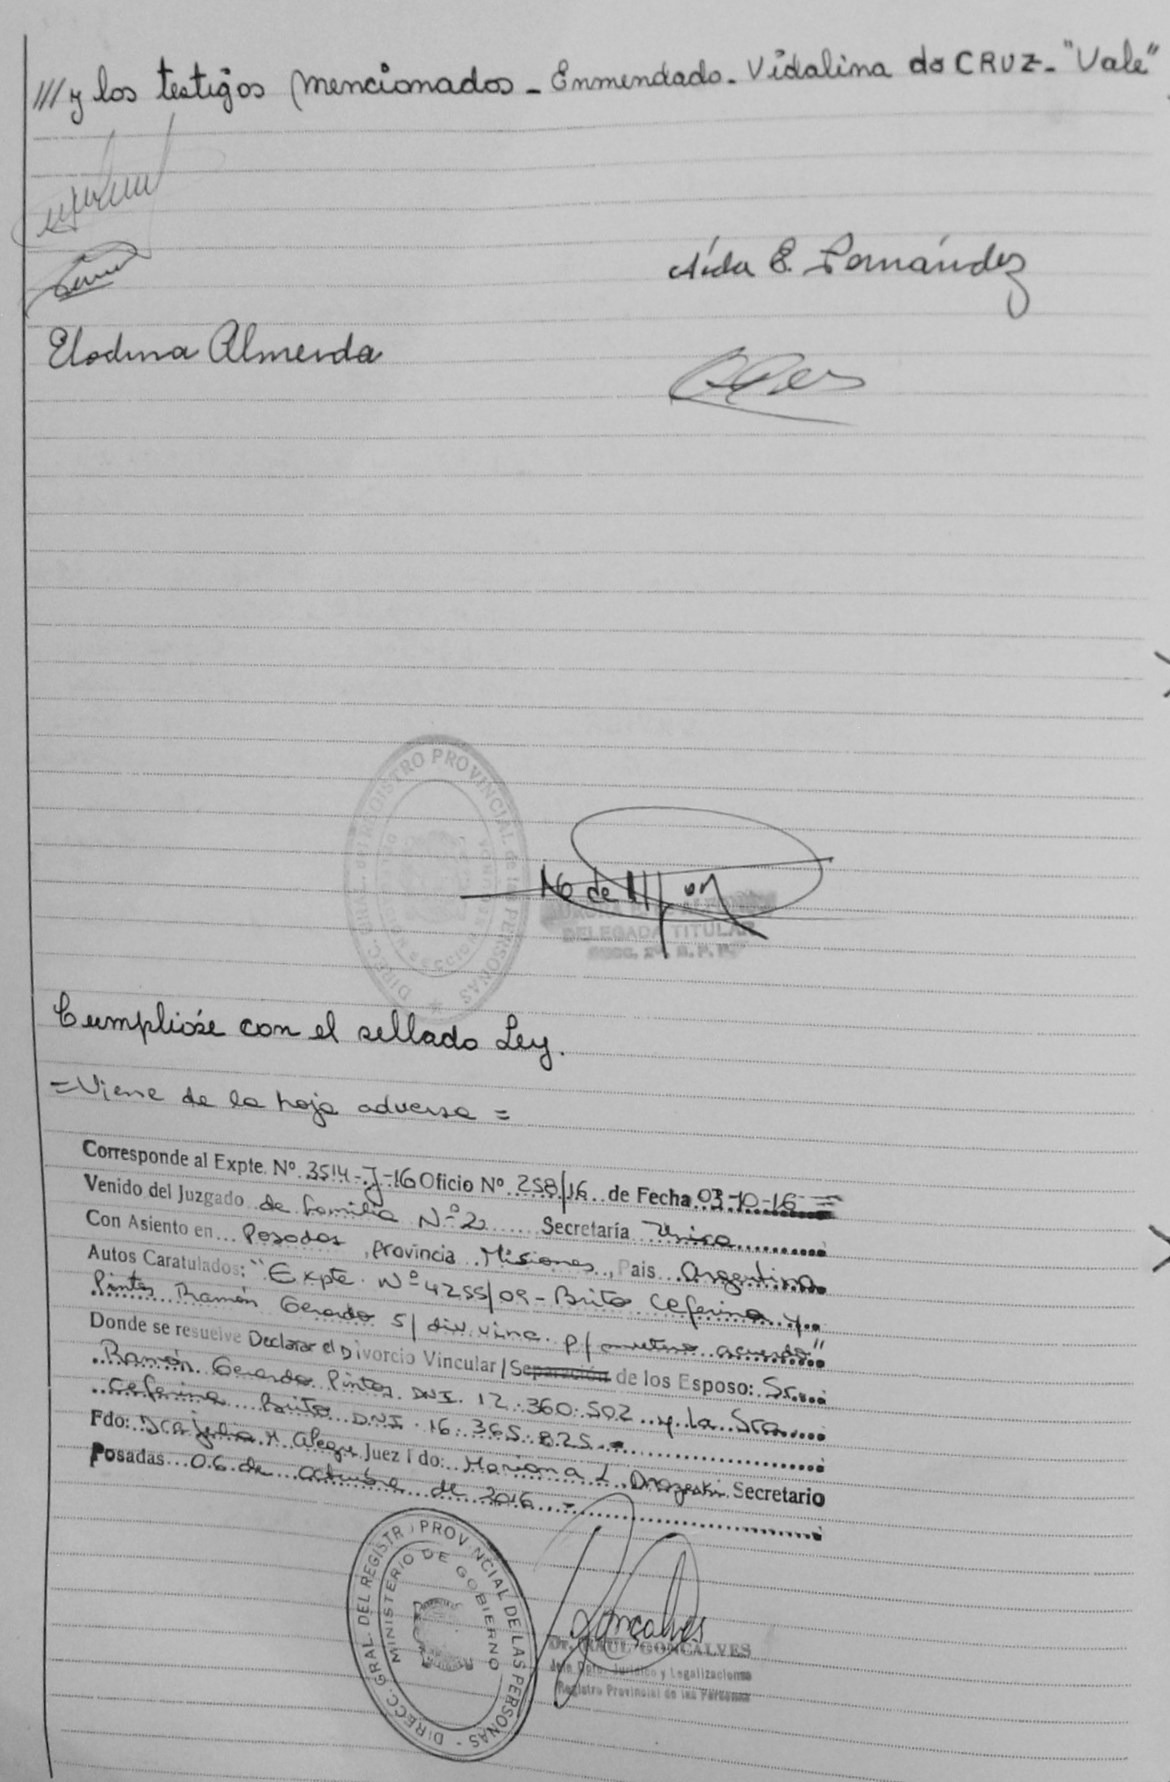 /// y los testigos mencionados - Enmendado - Vidalina do CRUZ - "Vale"
Aída E. Fernández
Elodina Almeida
DIREC. GRAL. del REGISTRO PROVINCIAL de las PERSONAS
DELEGADA TITULAR
Cumplióse con el sellado Ley.
= Viene de la hoja adversa =
Corresponde al Expte. Nº 3514-J-16 Oficio Nº 258/16 de Fecha 03-10-16 =
Venido del Juzgado de Familia Nº 2 Secretaría Unica
Con Asiento en Posadas, provincia Misiones, Pais Argentina
Autos Caratulados: "Expte. Nº 4255/09 - Brito Ceferina y
Pintos Ramón Gerardo s/ div. vinc. p/ mutuo acuerdo"
Donde se resuelve Declarar el Divorcio Vincular/Separación de los Esposo: Sr.
Ramón Gerardo Pintos DNI. 12.360.502 y la Sra.
Ceferina Brito DNI. 16.365.825 -
Fdo: Dra Julia H Alegre Juez Fdo: Mariana L Secretario
Posadas 06 de octubre de 2016 -
DIRECC. GRAL. DEL REGISTR. PROVINCIAL DE LAS PERSONAS
MINISTERIO DE GOBIERNO
Goncalves
Dr. RAUL GONCALVES
Jefe Dpto. Jurídico y Legalizaciones
Registro Provincial de las Personas